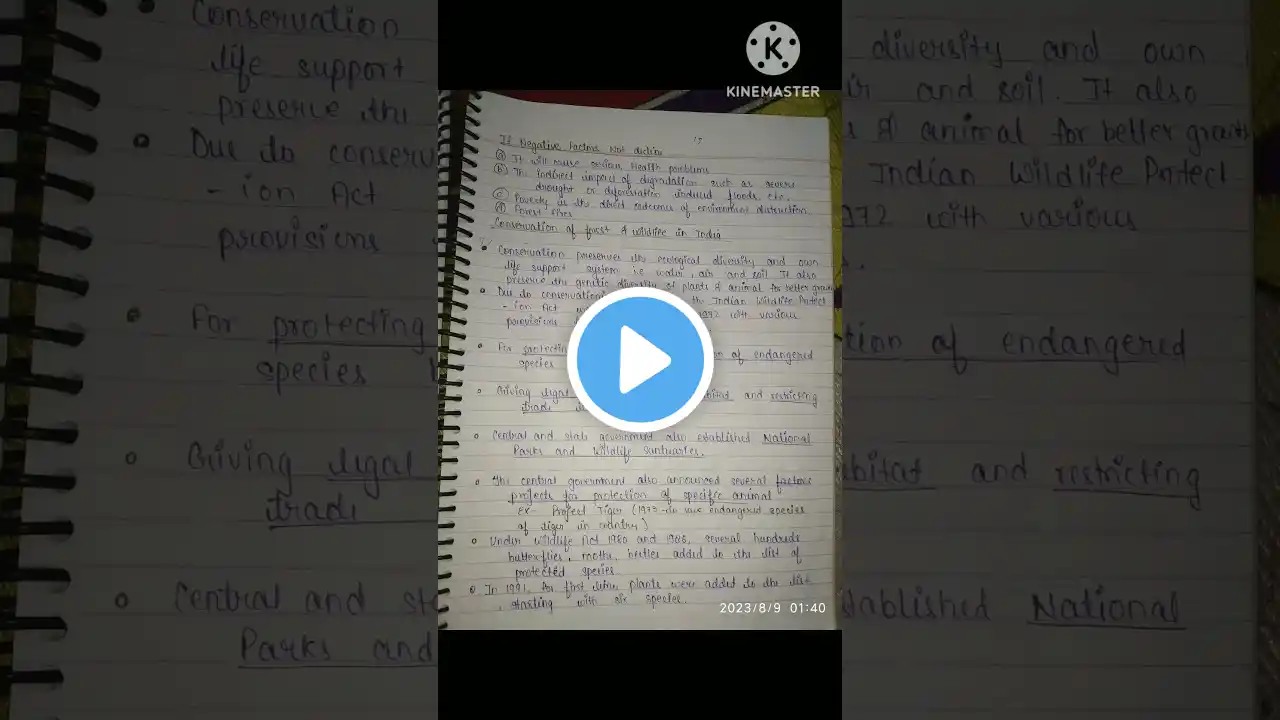 KINEMASTER
If Negative Factors Not decline
(a) It will cause serious Health problems
(b) The indirect impact of degradation such as severe
drought or deforestation induced floods etc.
(c) Poverty is the direct outcome of environment distruction
(d) Forest fires
Conservation of forest & wildlife in India
Conservation preserves the ecological diversity and own
life support system i.e water, air and soil It also
preserve the genetic diversity of plants & animal for better growth
Due to conservation the Indian Wildlife Protect
-ion Act 1972 with various
provisions
For protecting tion of endangered
species
Giving legal bitat and restricting
trade
Central and state government also established National
Parks and Wildlife Santuaries.
The central government also announced several factors
projects for protection of specific animal
Ex- Project Tiger (1973-to save endangered species
of tiger in country)
Under Wildlife Act 1980 and 1986, several hundreds
butterflies, moths, beetles added to the list of
protected species.
In 1991, for first time plants were added to the list
, starting with six species.
2023/8/9 01:40
Conservation diversity and own
life support air and soil. It also
preserve the & animal for better growth
Due to conserv Indian Wildlife Protect
-ion Act 1972 with various
provisions
For protecting tion of endangered
species
Giving legal bitat and restricting
trade
Central and st tablished National
Parks and